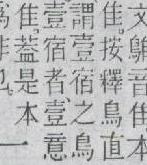 文鵻音隹本
隹按釋鳥直
謂壹宿之鳥
壹宿者壹意
隹蓋是本
一